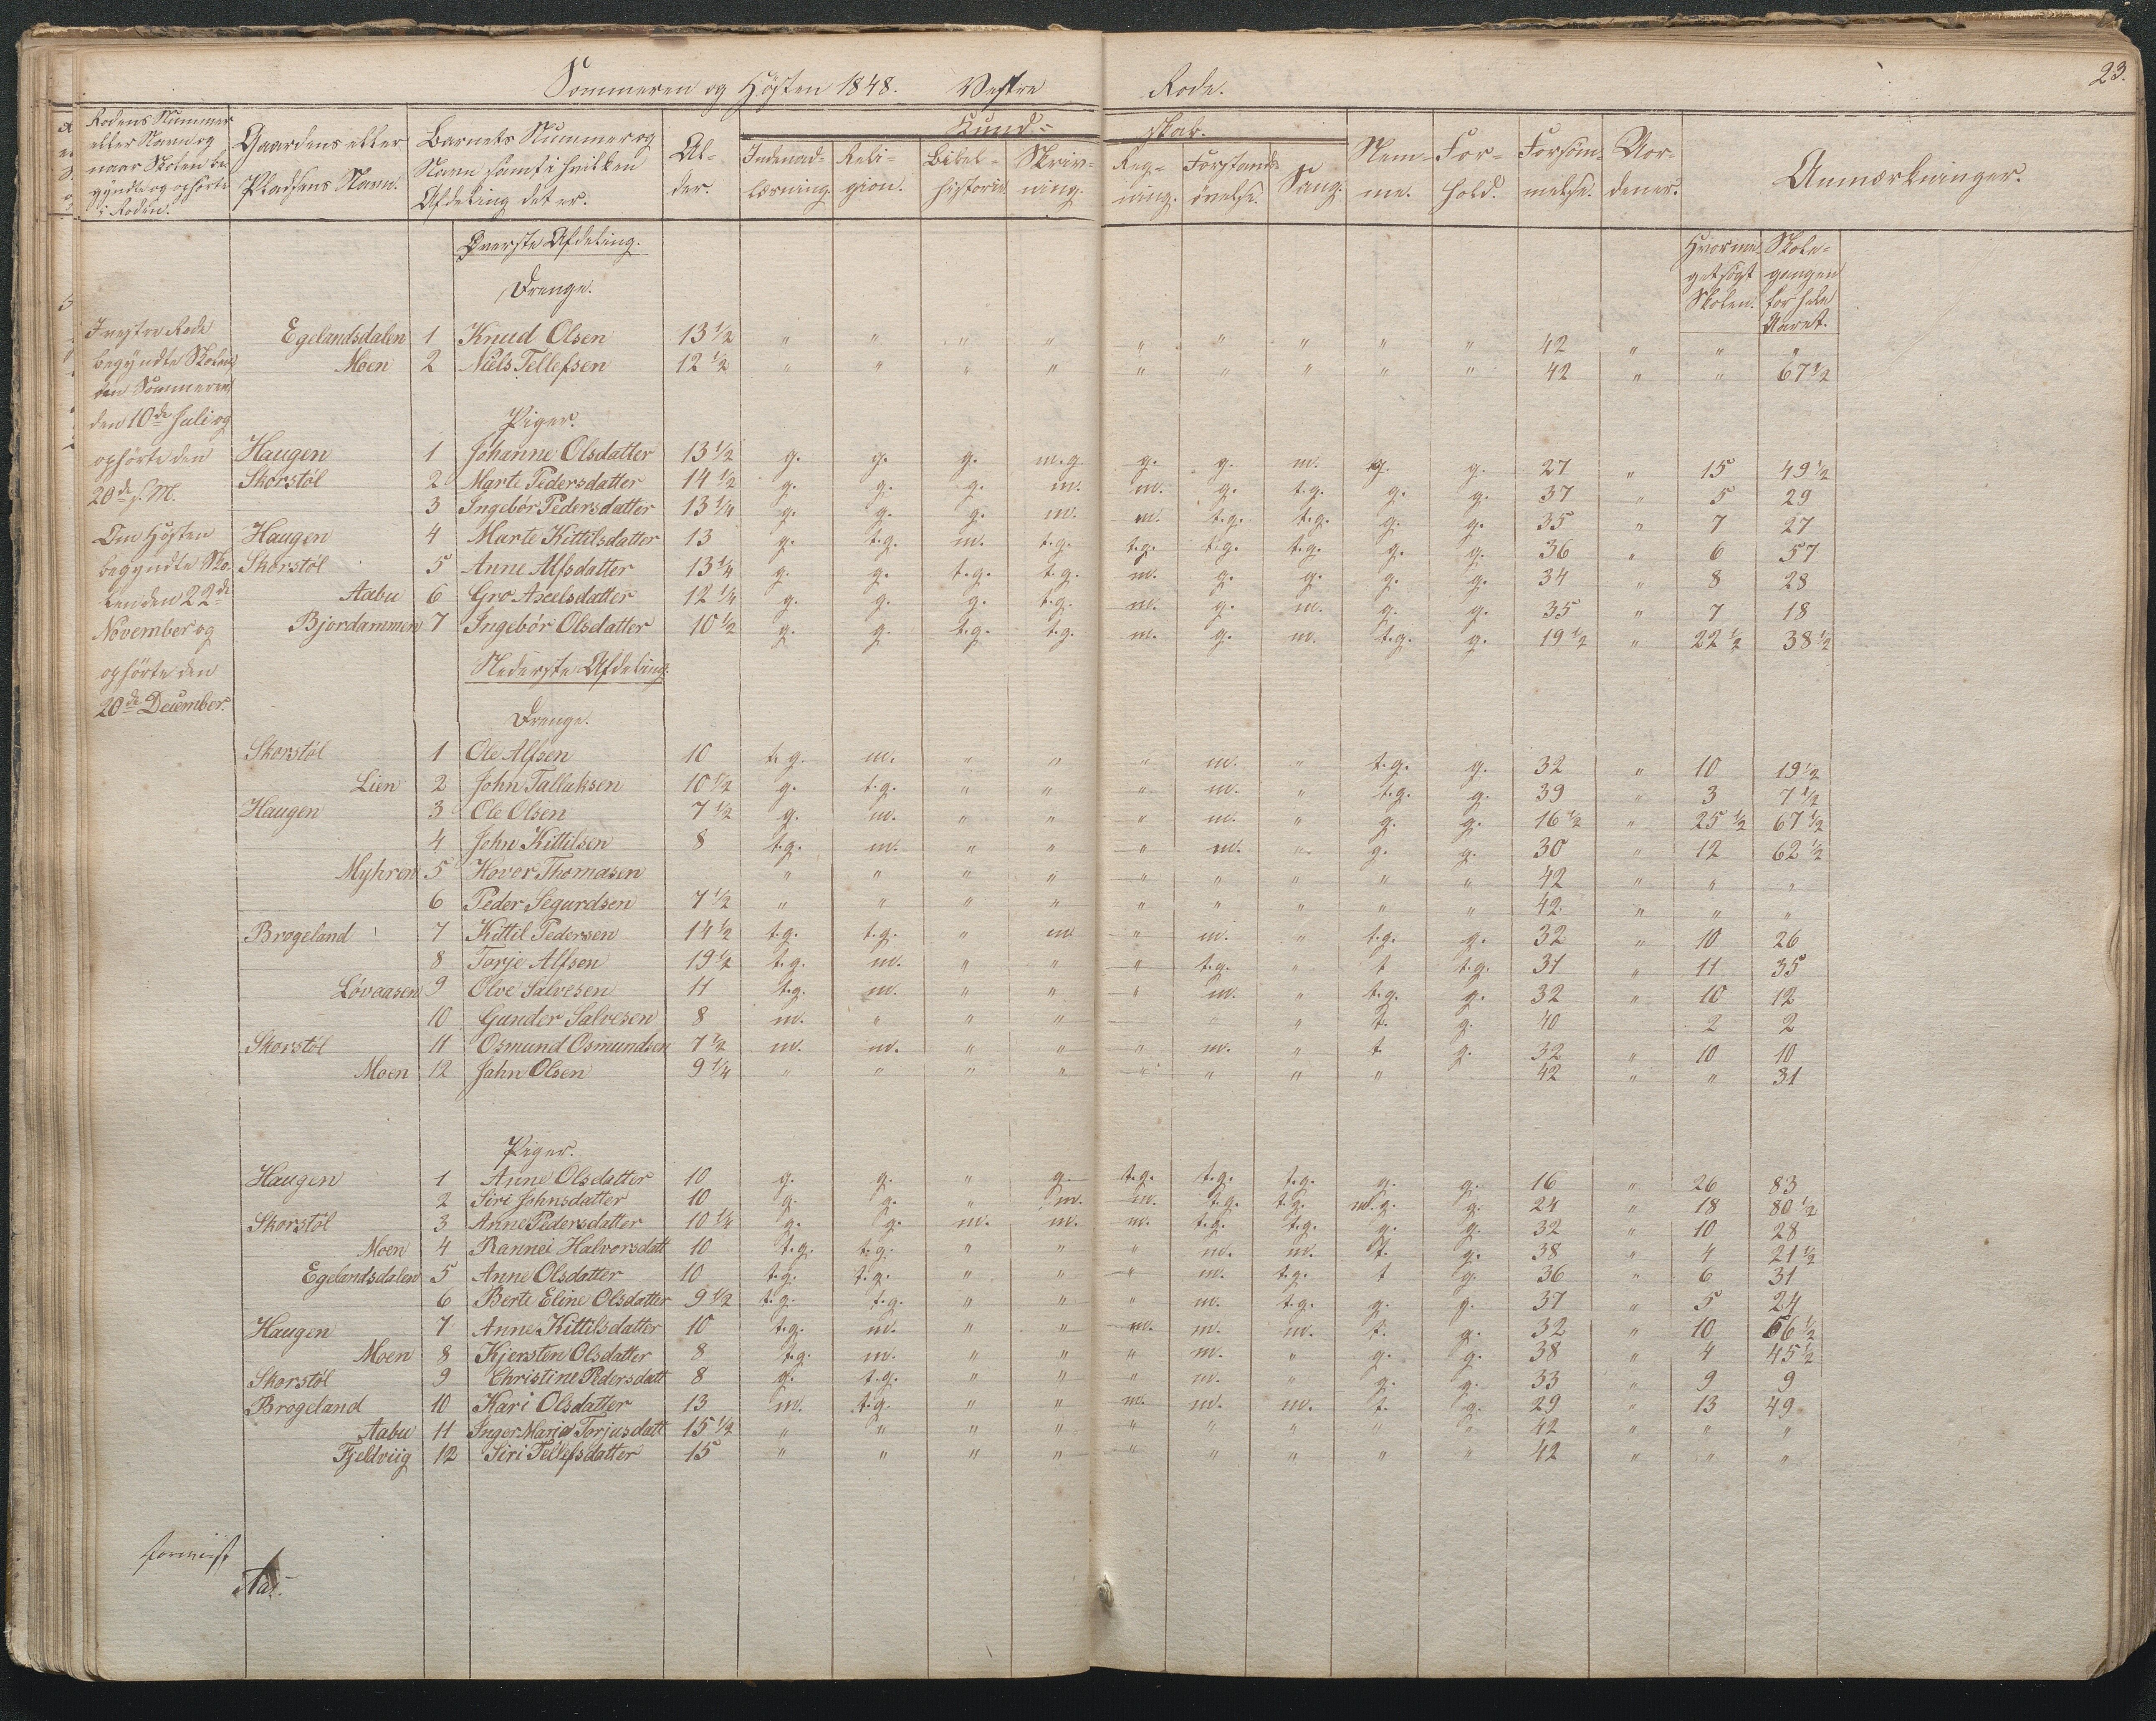 Sommeren og Høsten 1848. Vestre Rode.
23.
Rodens Nummer eller Navn og naar Skolen begyndte og ophørte i Roden.
Gaardens eller Pladsens Navn.
Barnets Nummer og Navn samt i hvilken Afdeling det er.
Alder.
Kundskab.
Indenadlæsning.
Religion.
Bibelhistorie
Skrivning.
Regning.
Forstandsøvelse.
Sang.
Nemme.
Forhold.
Forsømmelse.
Uordener.
Anmærkninger.
Hvormeget søgt Skolen.
Skolegangen for hele Aaret.
I vestre Rode
begyndte Skolen
om Sommeren
den 10de Juli og
ophørte den
20de s. M.
Om Høsten
begyndte Sko-
len den 22de
November og
ophørte den
20de December.
Øverste Afdeling.
Drenge.
Egelandsdalen 1 Knud Olsen 13 1/2 " " " " " " " " " 42 " " "
Moen 2 Niels Tellefsen 12 1/2 " " " " " " " " " 42 " " 67 1/2
Piger.
Haugen 1 Johanne Olsdatter 13 1/2 g. g. g. m.g g. g. m. g. g. 27 " 15 49 1/2
Skorstøl 2 Marte Pedersdatter 14 1/2 g. g. g. m. m. g. t.g. g. g. 37 " 5 29
3 Ingebør Pedersdatter 13 1/4 g. g. g. m. m. t.g. t.g. g. g. 35 " 7 27
Haugen 4 Marte Kittilsdatter 13 g. t.g. m. t.g. t.g. t.g. t.g. g. g. 36 " 6 57
Skorstøl 5 Anne Alfsdatter 13 1/4 g. g. t.g. t.g. m. g. g. g. g. 34 " 8 28
Aabu 6 Gro Axelsdatter 12 1/4 g. g. g. t.g. m. g. m. g. g. 35 " 7 18
Bjordammen 7 Ingebør Olsdatter 10 1/2 g. g. t.g. t.g. m. g. m. t.g. g. 19 1/2 " 22 1/2 38 1/2
Nederste Afdeling.
Drenge.
Skorstøl 1 Ole Alfsen 10 t.g. m. " " " m. " t.g. g. 32 " 10 19 1/2
Lien 2 John Tallaksen 10 1/2 g. t.g. " " " m. " t.g. g. 39 " 3 7 1/2
Haugen 3 Ole Olsen 7 1/2 g. m. " " " m. " g. g. 16 1/2 " 25 1/2 67 1/2
4 John Kittilsen 8 t.g. m. " " " m. " g. g. 30 " 12 62 1/2
Myhren 5 Hovor Thomasen " " " " " " " " " 42 " " "
6 Peder Segurdsen 7 1/2 " " " " " " " " " 42 " " "
Brogeland 7 Kittil Pedersen 14 1/2 t.g. t.g. " m " m. " t.g. g. 32 " 10 26
8 Torje Alfsen 19 1/2 t.g. m. " " " t.g. " t t.g. 31 " 11 35
Løvaasen 9 Olve Salvesen 11 t.g. m. " " " m. " t.g. g. 32 " 10 12
10 Gunder Salvesen 8 m. " " " " " t. g. 40 2 2
Skorstøl 11 Osmund Osmundsen 7 1/2 m. m. " " " m. " t g. 32 " 10 10
Moen 12 Jahn Olsen 9 1/4 " " " " " " " " 42 " " 31
Piger.
Haugen 1 Anne Olsdatter 10 g. g. " g. t.g. t.g. t.g. g. g. 16 " 26 83
2 Siri Johnsdatter 10 g. g. " m. m. t.g. t.g. m.g. g. 24 " 18 80 1/2
Skorstøl 3 Anne Pedersdatter 10 1/4 g. g. m. m. m. t.g. t.g. g. g. 32 " 10 28
Moen 4 Rannei Halvorsdatt 10 t.g. t.g. " " " m. m. t. g. 38 " 4 21 1/2
Egelandsdalen 5 Anne Olsdatter 10 t.g. t.g. " " " m. t.g. t g. 36 " 6 31
6 Berte Eline Olsdatter 9 1/2 t.g. t.g. " " " m. t.g. g. g. 37 " 5 24
Haugen 7 Anne Kittilsdatter 10 t.g. m. " " m. m. m. t. g. 32 " 10 56 1/2
Moen 8 Kjersten Olsdatter 8 t.g. m. " " " m. " g. g. 38 " 4 45 1/2
Skorstøl 9 Christine Pedersdatt 8 g. t.g. " " " m. " g. g. 33 " 9 9
Brogeland 10 Kari Olsdatter 13 m. t.g. " " m. m. m. t. g. 29 " 13 49
Aabu 11 Inger Maria Torjusdatt 15 1/2 " " " " " " " " " 42 " " "
Fjeldviig 12 Siri Tellefsdatter 15 " " " " " " " " " 42 " " "